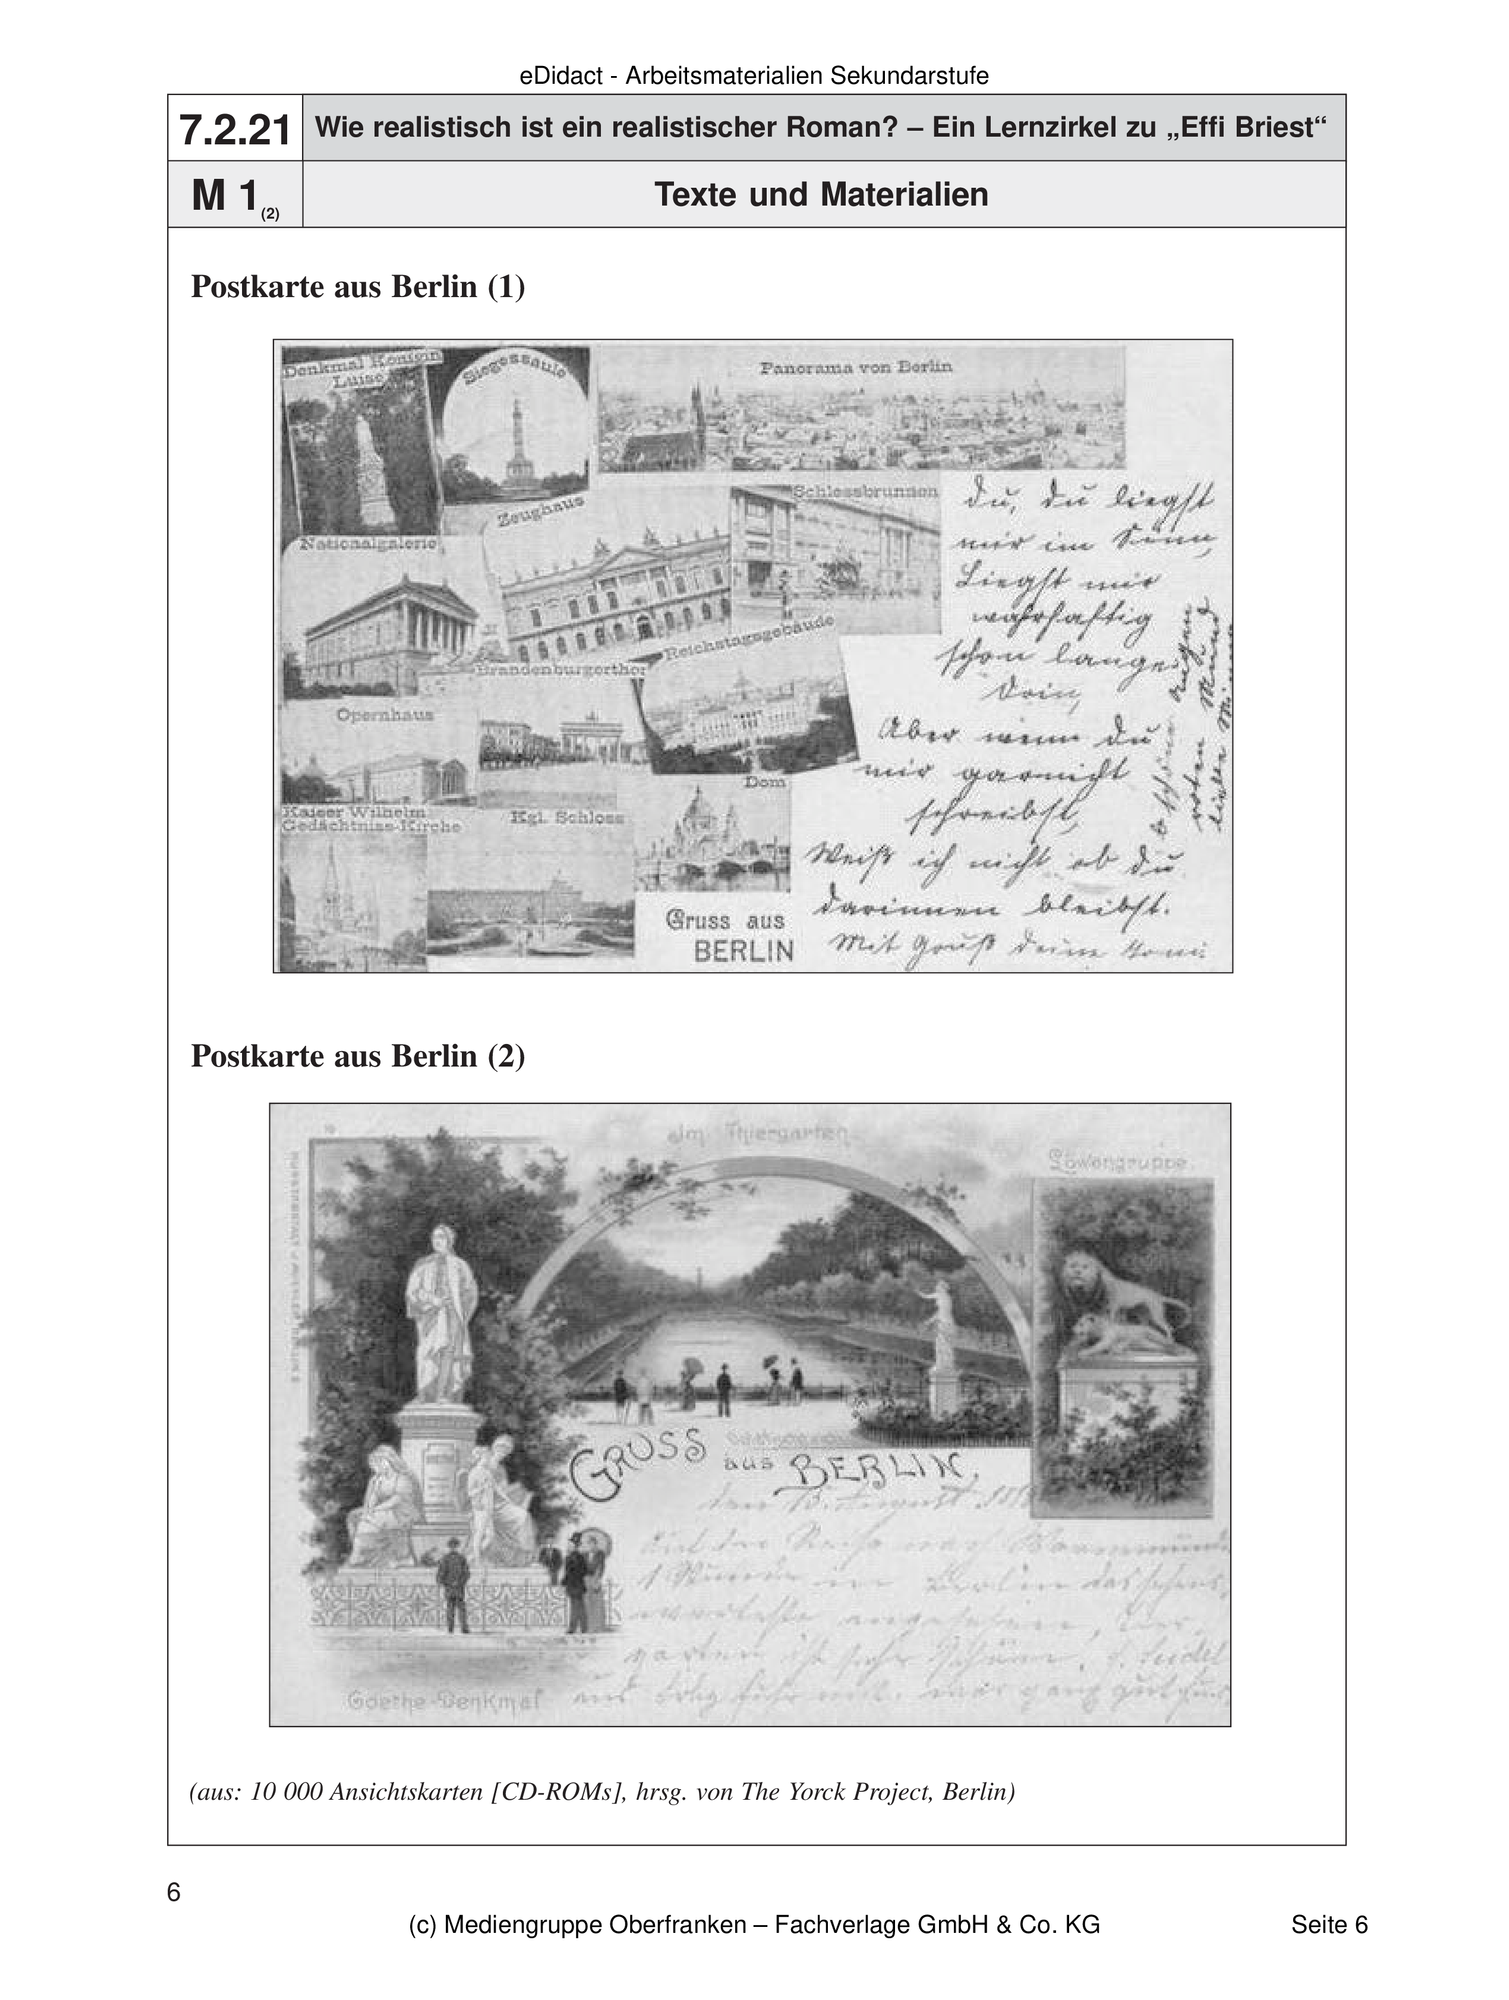 eDidact - Arbeitsmaterialien Sekundarstufe
7.2.21
Wie realistisch ist ein realistischer Roman? – Ein Lernzirkel zu „Effi Briest“
M 1(2)
Texte und Materialien
Postkarte aus Berlin (1)
Denkmal Königin
Luise
Siegessäule
Panorama von Berlin
Zeughaus
Schlossbrunnen
Nationalgalerie
Brandenburgerthor
Reichstagsgebäude
Opernhaus
Kaiser Wilhelm
Gedächtniss-Kirche
Kgl. Schloss
Dom
Gruss aus
BERLIN
Du, du liegst
mir im Sinn,
Liegst mir
wahrhaftig
schon lange
drin,
Aber wenn du
mir garnicht
schreibst,
Weiß ich nicht ob du
darinnen bleibst.
Mit Gruß deine
Postkarte aus Berlin (2)
Im Thiergarten
Löwengruppe
GRUSS
aus BERLIN
den 13. August
in Berlin
angesehen,
garten ist sehr
Goethe-Denkmal
(aus: 10 000 Ansichtskarten [CD-ROMs], hrsg. von The Yorck Project, Berlin)
6
(c) Mediengruppe Oberfranken – Fachverlage GmbH & Co. KG
Seite 6